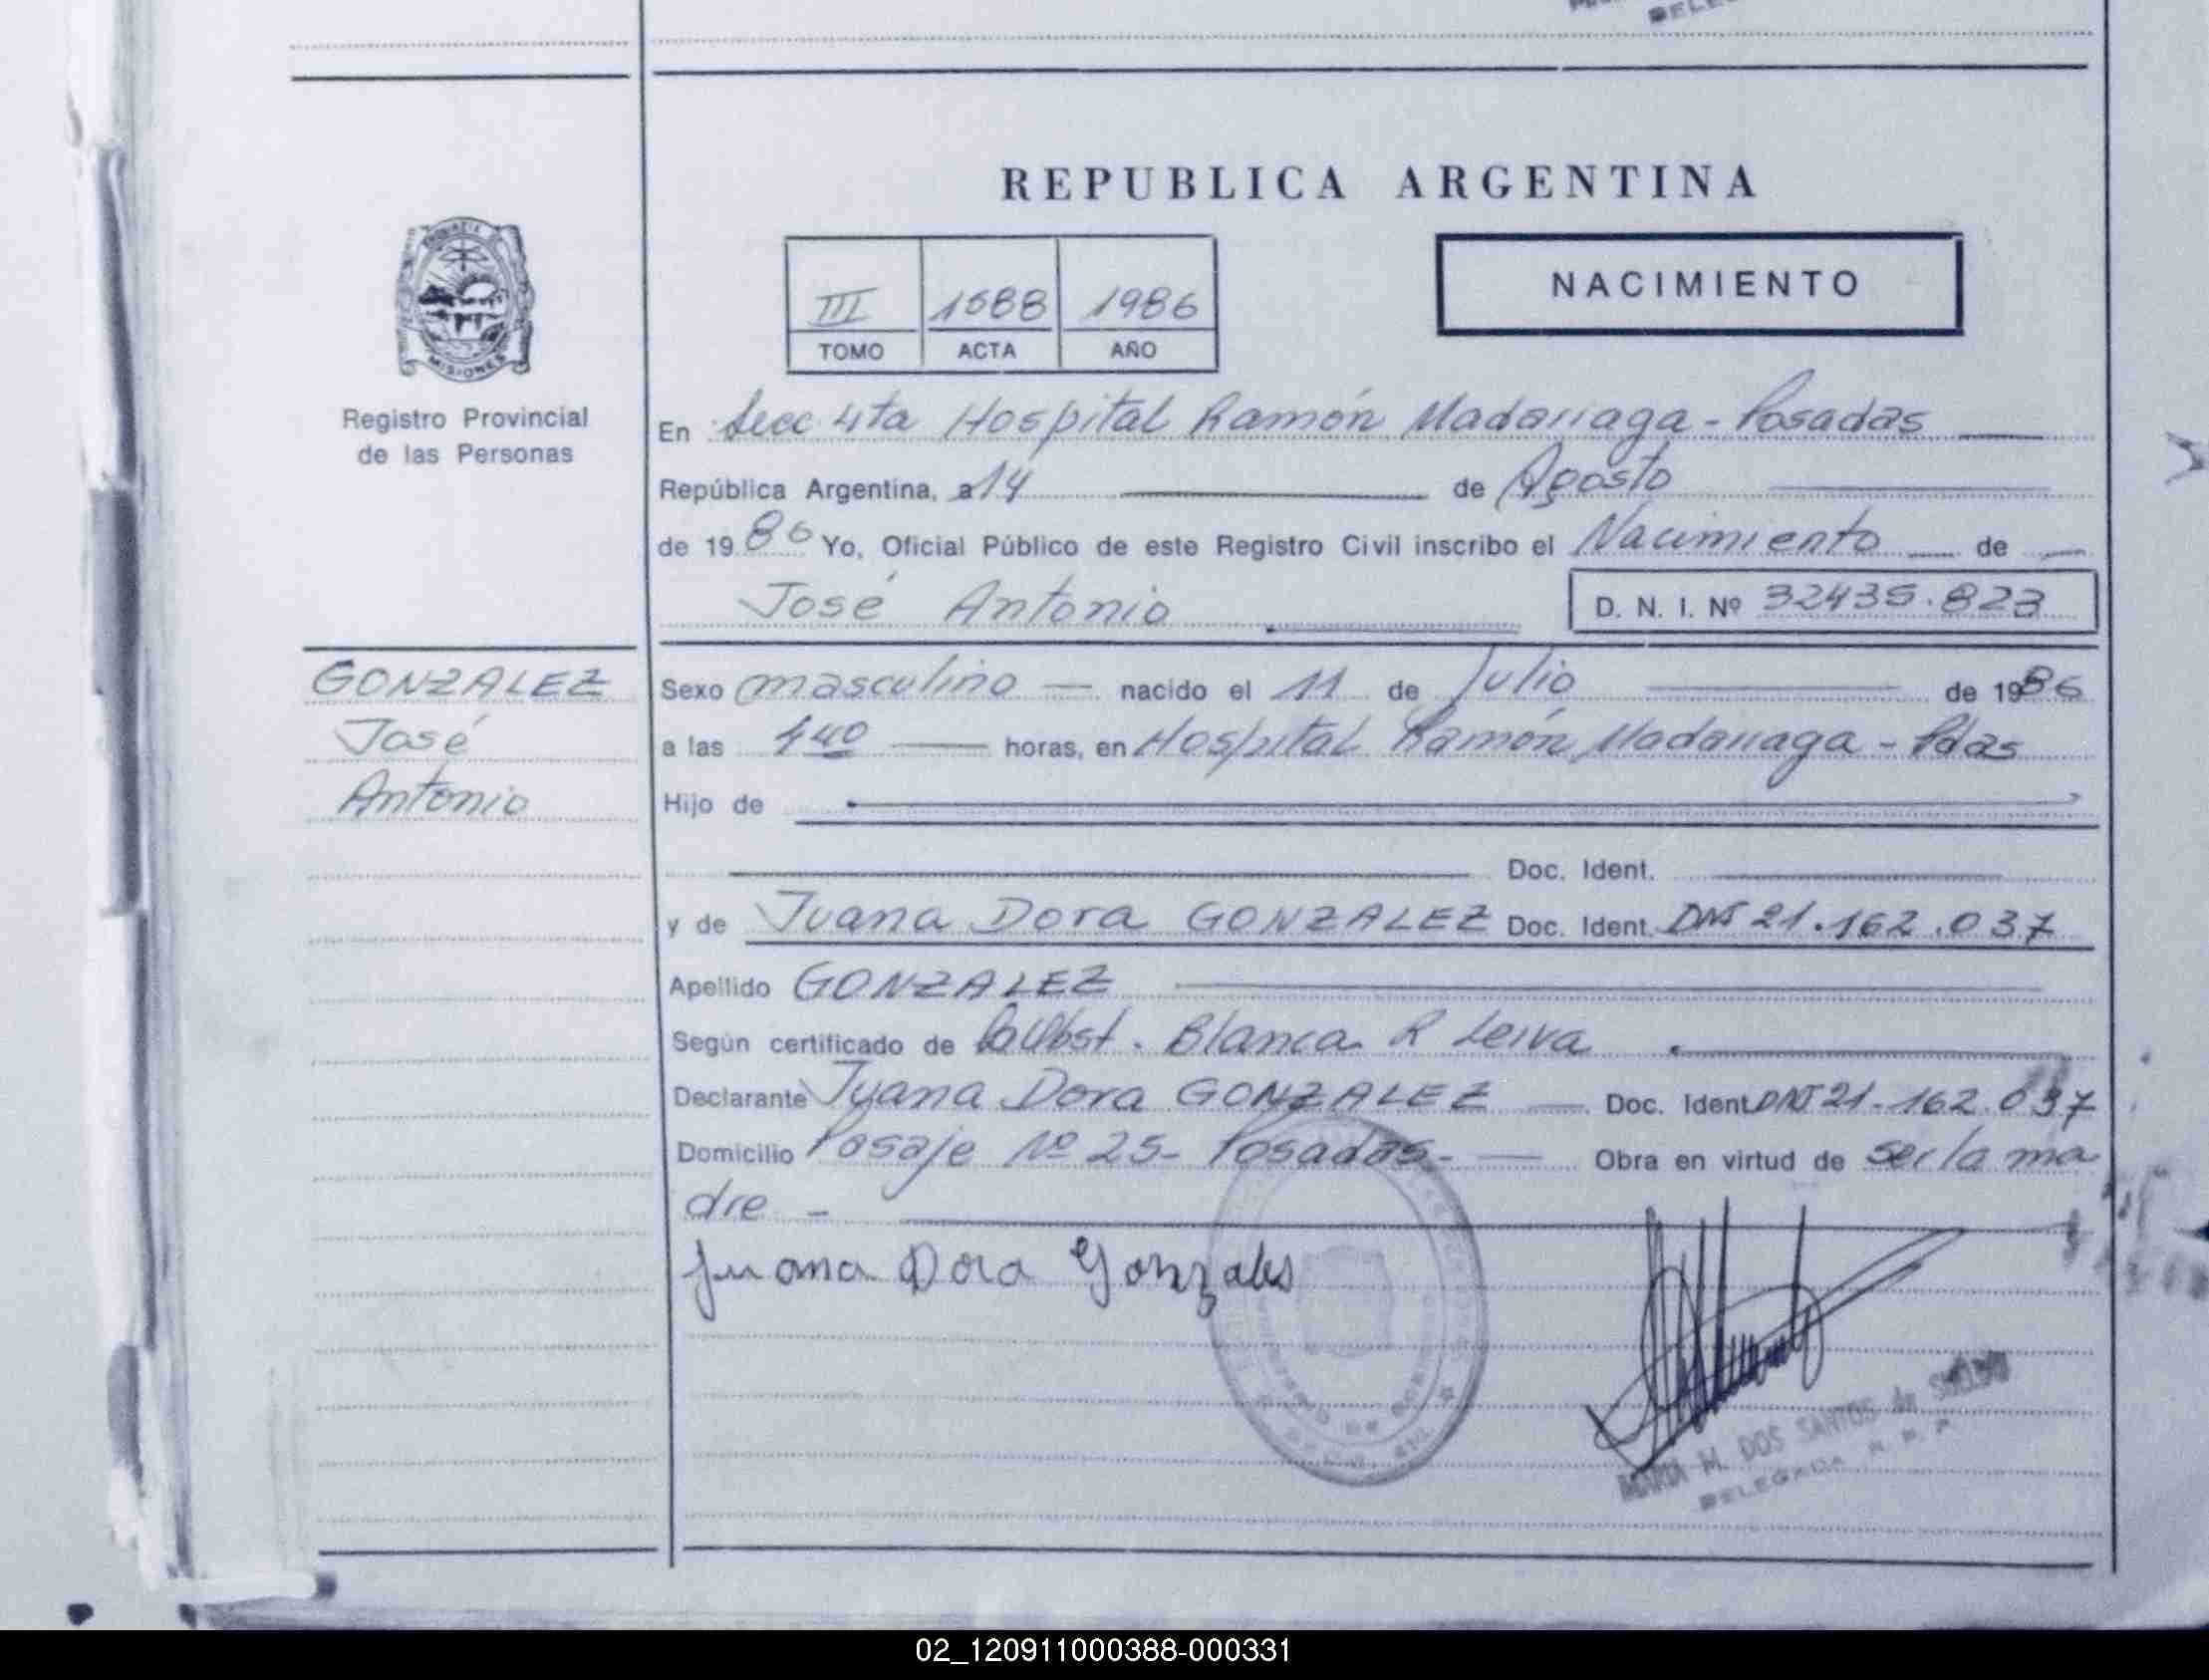 REPUBLICA ARGENTINA
NACIMIENTO
III 1588 1986
TOMO ACTA AÑO
MISIONES
Registro Provincial
de las Personas
En Secc 4ta Hospital Ramón Madariaga - Posadas
República Argentina, a 14 de Agosto
de 1986 Yo, Oficial Público de este Registro Civil inscribo el Nacimiento de
José Antonio D. N. I. Nº 32435.823
GONZALEZ
José
Antonio
Sexo masculino nacido el 11 de Julio de 1986
a las 4 40 horas, en Hospital Ramón Madariaga - Pdas
Hijo de
Doc. Ident.
y de Juana Dora GONZALEZ Doc. Ident. DNI 21.162.037
Apellido GONZALEZ
Según certificado de Blanca R Leiva
Declarante Juana Dora GONZALEZ Doc. Ident. DNI 21.162.037
Domicilio Pasaje Nº 25 - Posadas - Obra en virtud de ser la ma
dre -
Juana Dora Gonzales
MARIA M. DOS SANTOS de
DELEGADA R. P. P.
02_120911000388-000331